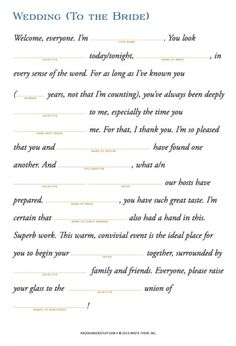 WEDDING (TO THE BRIDE)
Welcome, everyone. I'm ____________. You look
YOUR NAME
____________ today/tonight, ____________, in
ADJECTIVE NAME OF BRIDE
every sense of the word. For as long as I've known you
(________ years, not that I'm counting), you've always been deeply
NUMBER
____________ to me, especially the time you
ADJECTIVE
____________ me. For that, I thank you. I'm so pleased
VERB, PAST TENSE
that you and ____________ have found one
NAME OF GROOM
another. And ____________, what a/n
EXCLAMATION
____________ our hosts have
ADJECTIVE
prepared. ____________, you have such great taste. I'm
NAME OF BRIDE
certain that ____________ also had a hand in this.
NAME OF FAMILY MEMBER
Superb work. This warm, convivial event is the ideal place for
you to begin your ____________ together, surrounded by
NOUN
____________ family and friends. Everyone, please raise
ADJECTIVE
your glass to the ____________ union of
ADJECTIVE
____________!
NAMES OF NEWLYWEDS
KNOCKKNOCKSTUFF.COM • © 2013 WHO'S THERE, INC.